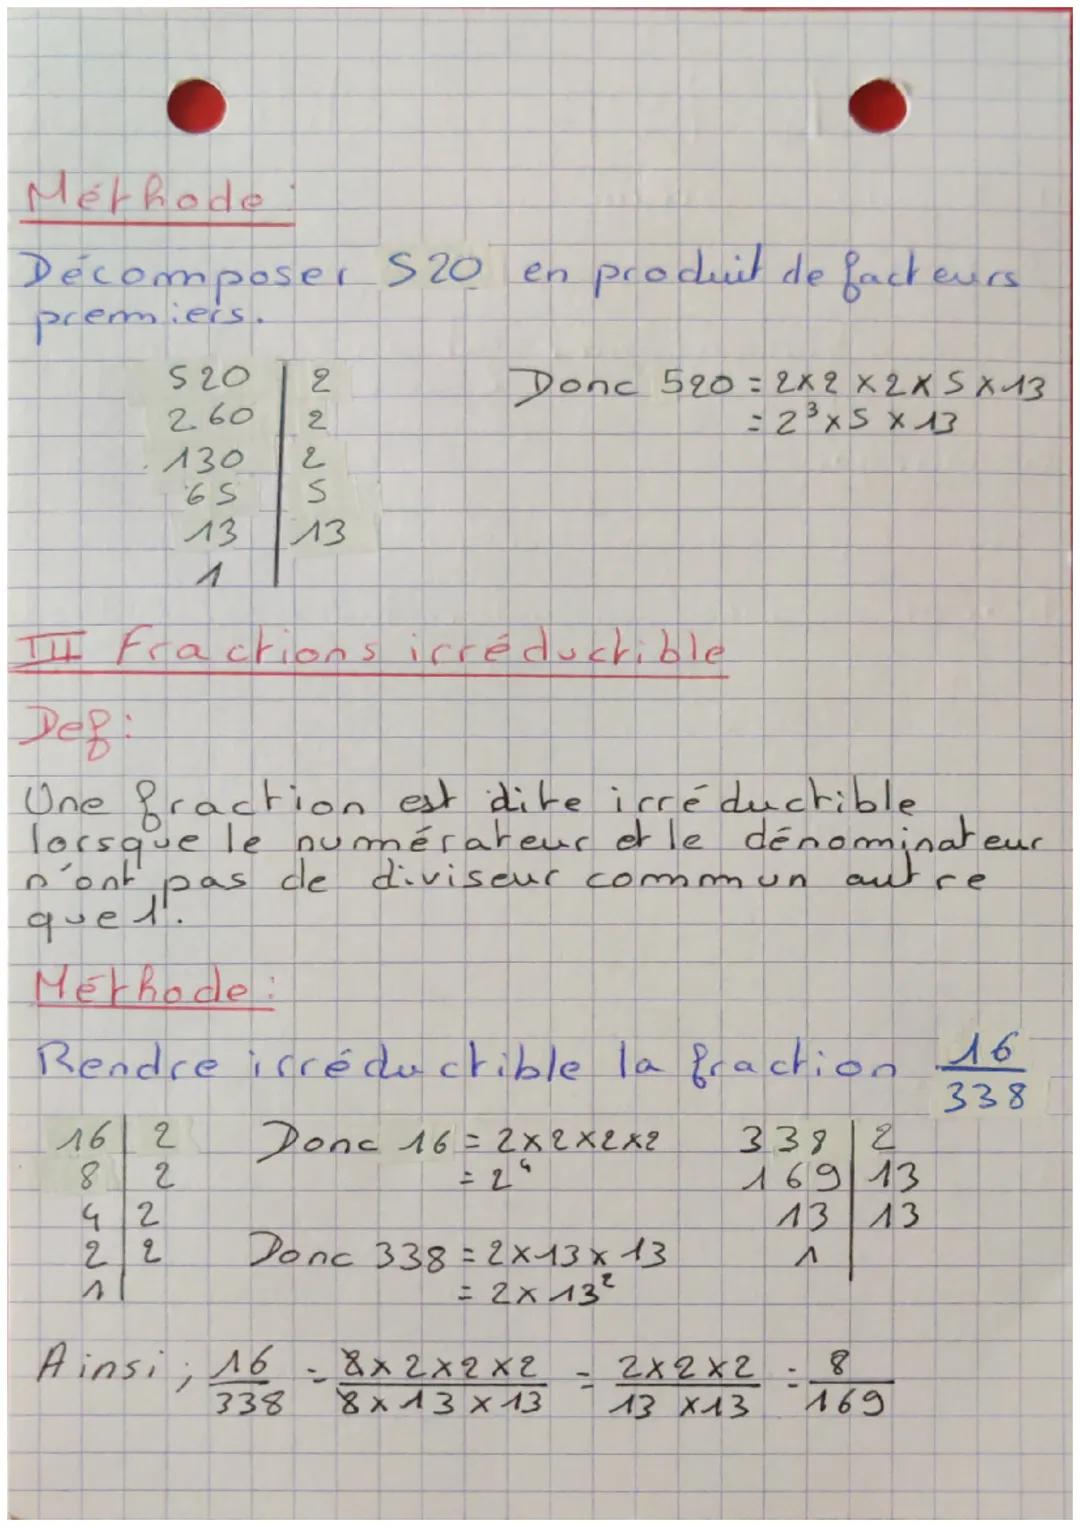 Méthode :
Décomposer 520 en produit de facteurs
premiers.
520 | 2
260 | 2
130 | 2
65 | 5
13 | 13
1 |
Donc 520 = 2×2×2×5×13
= 2³×5×13
III Fractions irréductible
Def :
Une fraction est dite irréductible
lorsque le numérateur et le dénominateur
n'ont pas de diviseur commun autre
que 1.
Méthode :
Rendre irréductible la fraction 16/338
16 | 2
8 | 2
4 | 2
2 | 2
1 |
Donc 16 = 2×2×2×2
= 2⁴
Donc 338 = 2×13×13
= 2×13²
338 | 2
169 | 13
13 | 13
1 |
Ainsi ; 16/338 = 2×2×2×2/2×13×13 = 2×2×2/13×13 = 8/169